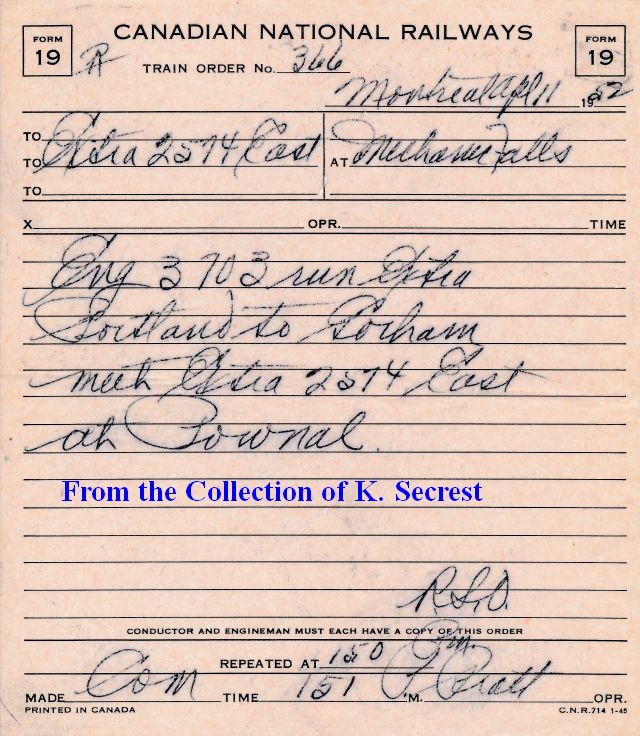 CANADIAN NATIONAL RAILWAYS
FORM 19
FORM 19
TRAIN ORDER No. 366
Montreal Apl 11 1952
TO
TO Extra 2574 East AT Mechanic Falls
TO
X OPR. TIME
Eng 3703 run Extra
Portland to Gorham
meet Extra 2574 East
at Pownal.
From the Collection of K. Secrest
CONDUCTOR AND ENGINEMAN MUST EACH HAVE A COPY OF THIS ORDER
REPEATED AT 150 Pm.
MADE Com TIME 151 M. Pratt OPR.
PRINTED IN CANADA C.N.R.714 1-45